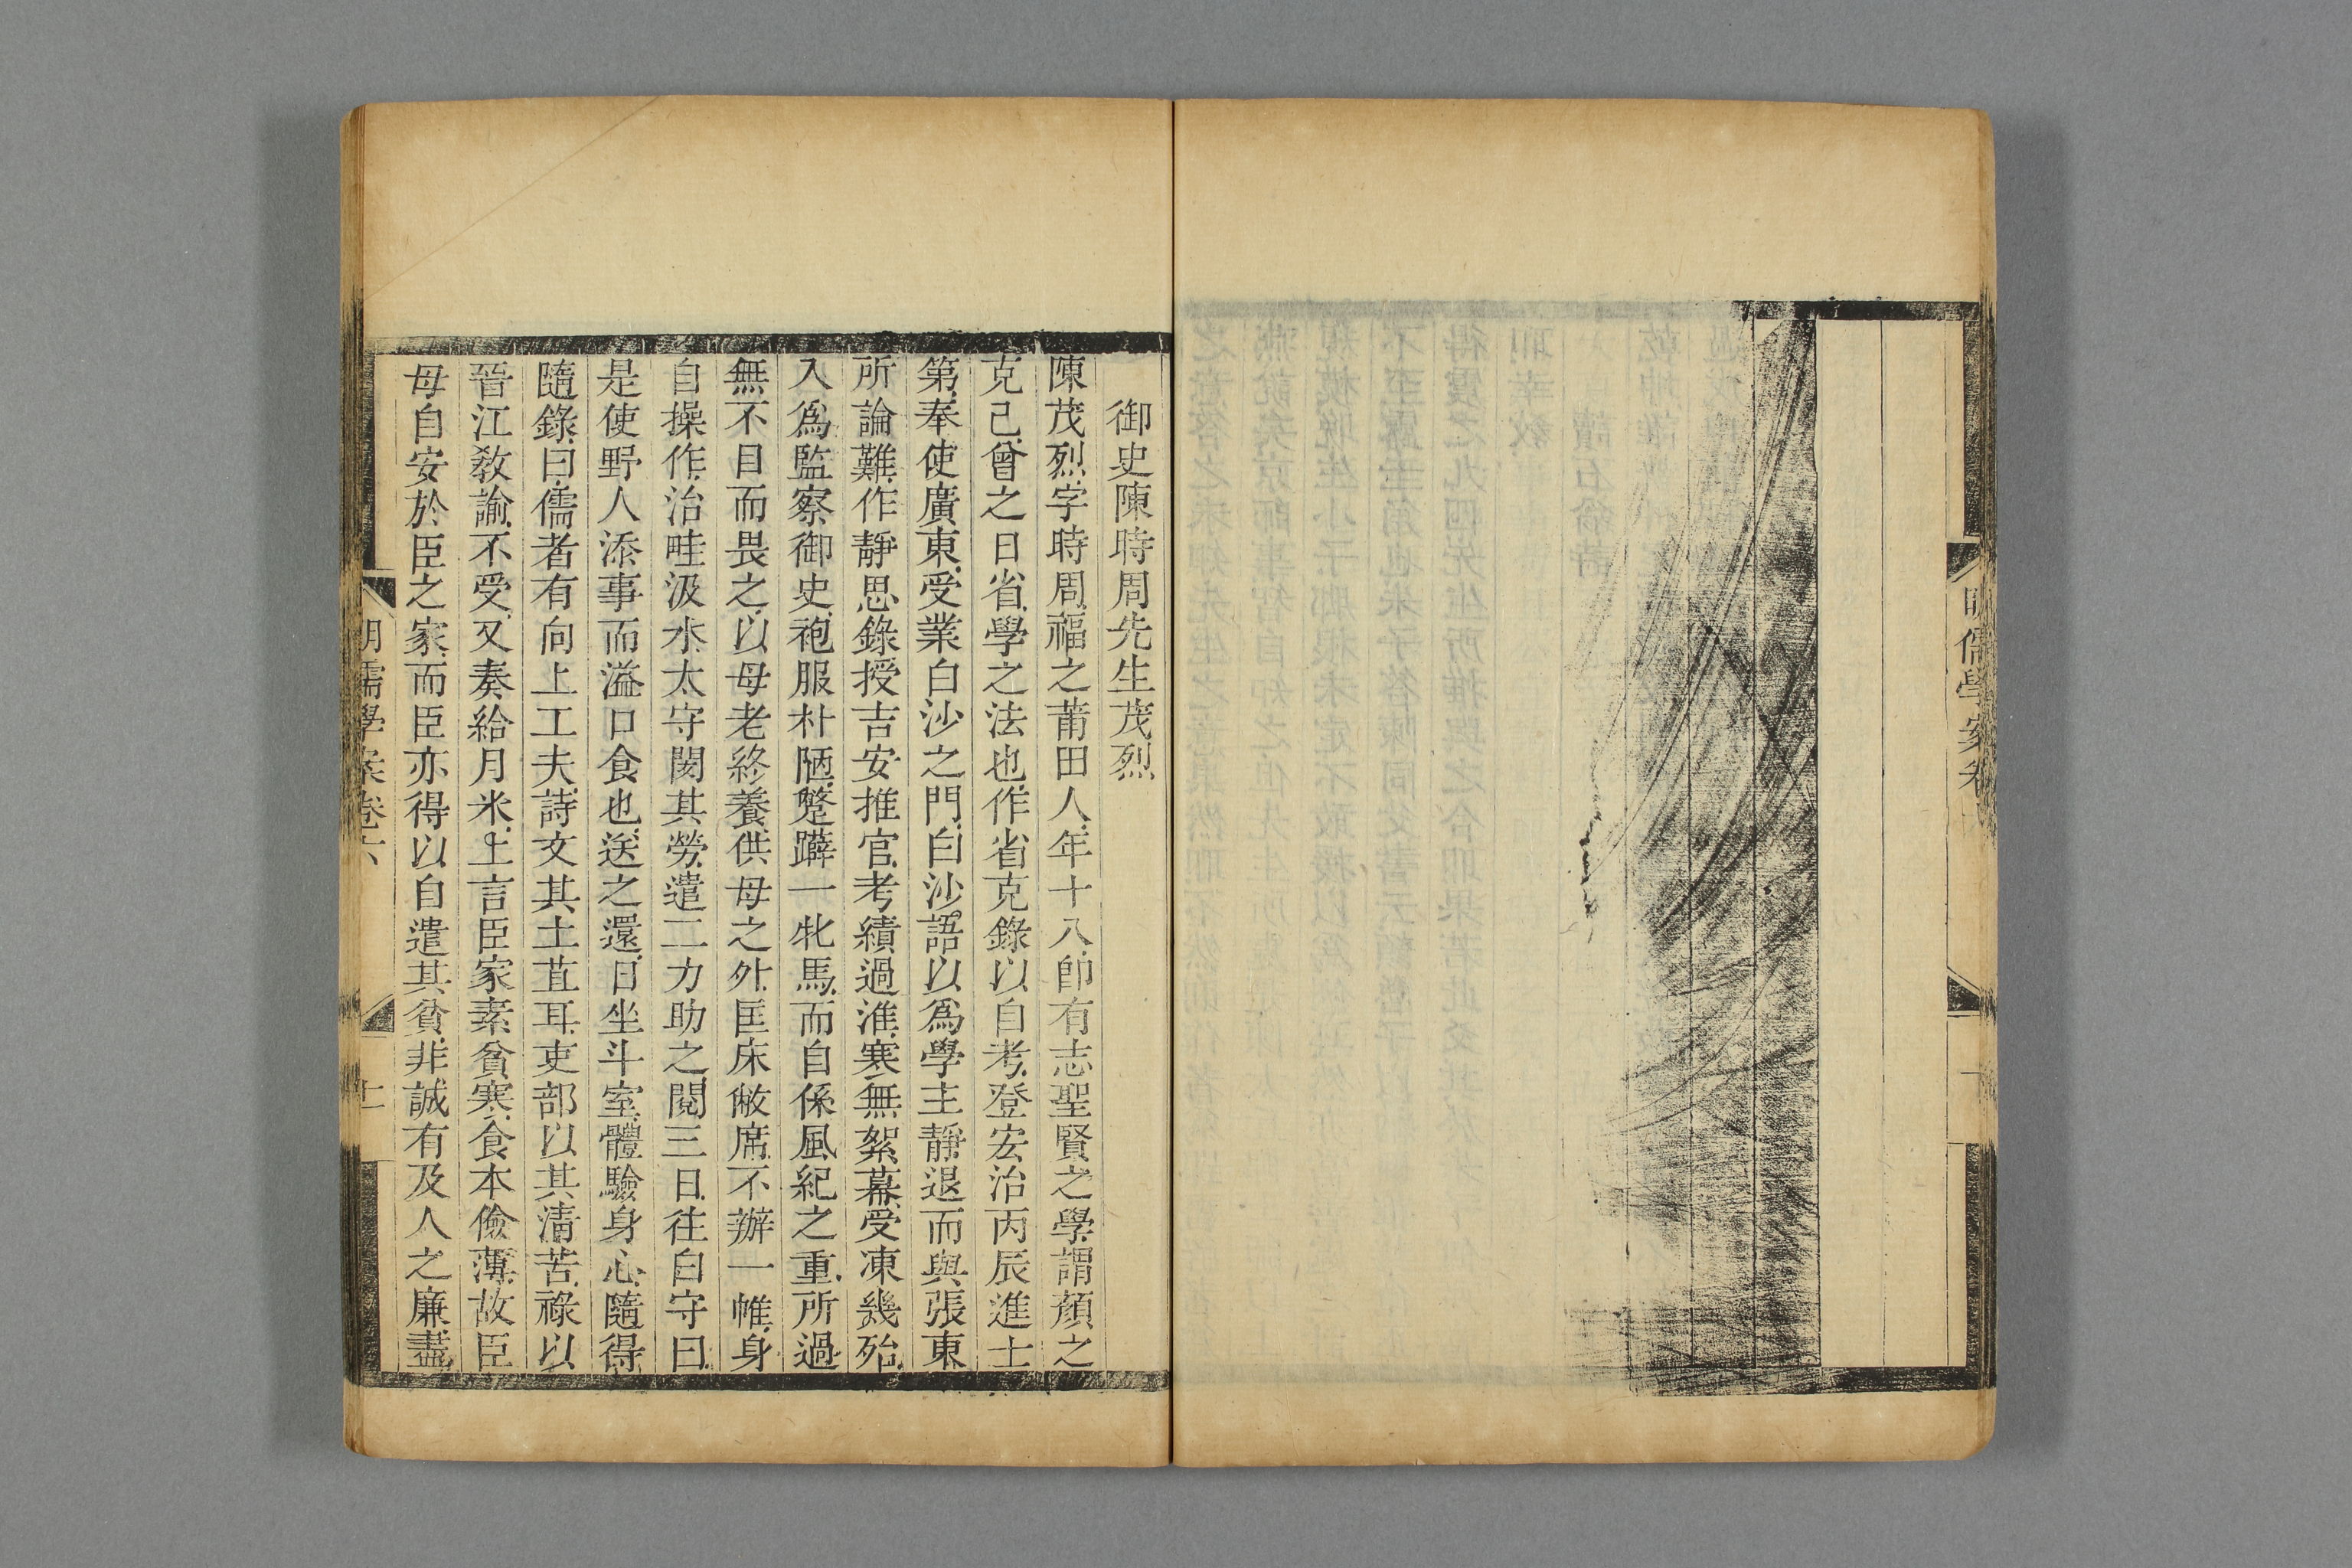 明儒學案卷
御史陳時周先生茂烈
陳茂烈字時周福之莆田人年十八卽有志聖賢之學謂顏之
克己曾之日省學之法也作省克錄以自考登宏治丙辰進士
第奉使廣東受業白沙之門白沙語以爲學主靜退而與張東
所論難作靜思錄授吉安推官考績過淮寒無絮幕受凍幾殆
入爲監察御史袍服朴陋蹩躃一牝馬而自係風紀之重所過
無不目而畏之以母老終養供母之外匡床敝席不辦一帷身
自操作治畦汲水太守閔其勞遣二力助之閱三日往白守曰
是使野人添事而溢口食也送之還日坐斗室體驗身心隨得
隨錄曰儒者有向上工夫詩文其土苴耳吏部以其清苦祿以
晉江敎諭不受又奏給月米上言臣家素貧寒食本儉薄故臣
母自安於臣之家而臣亦得以自遣其貧非誠有及人之廉盡
明儒學案卷六